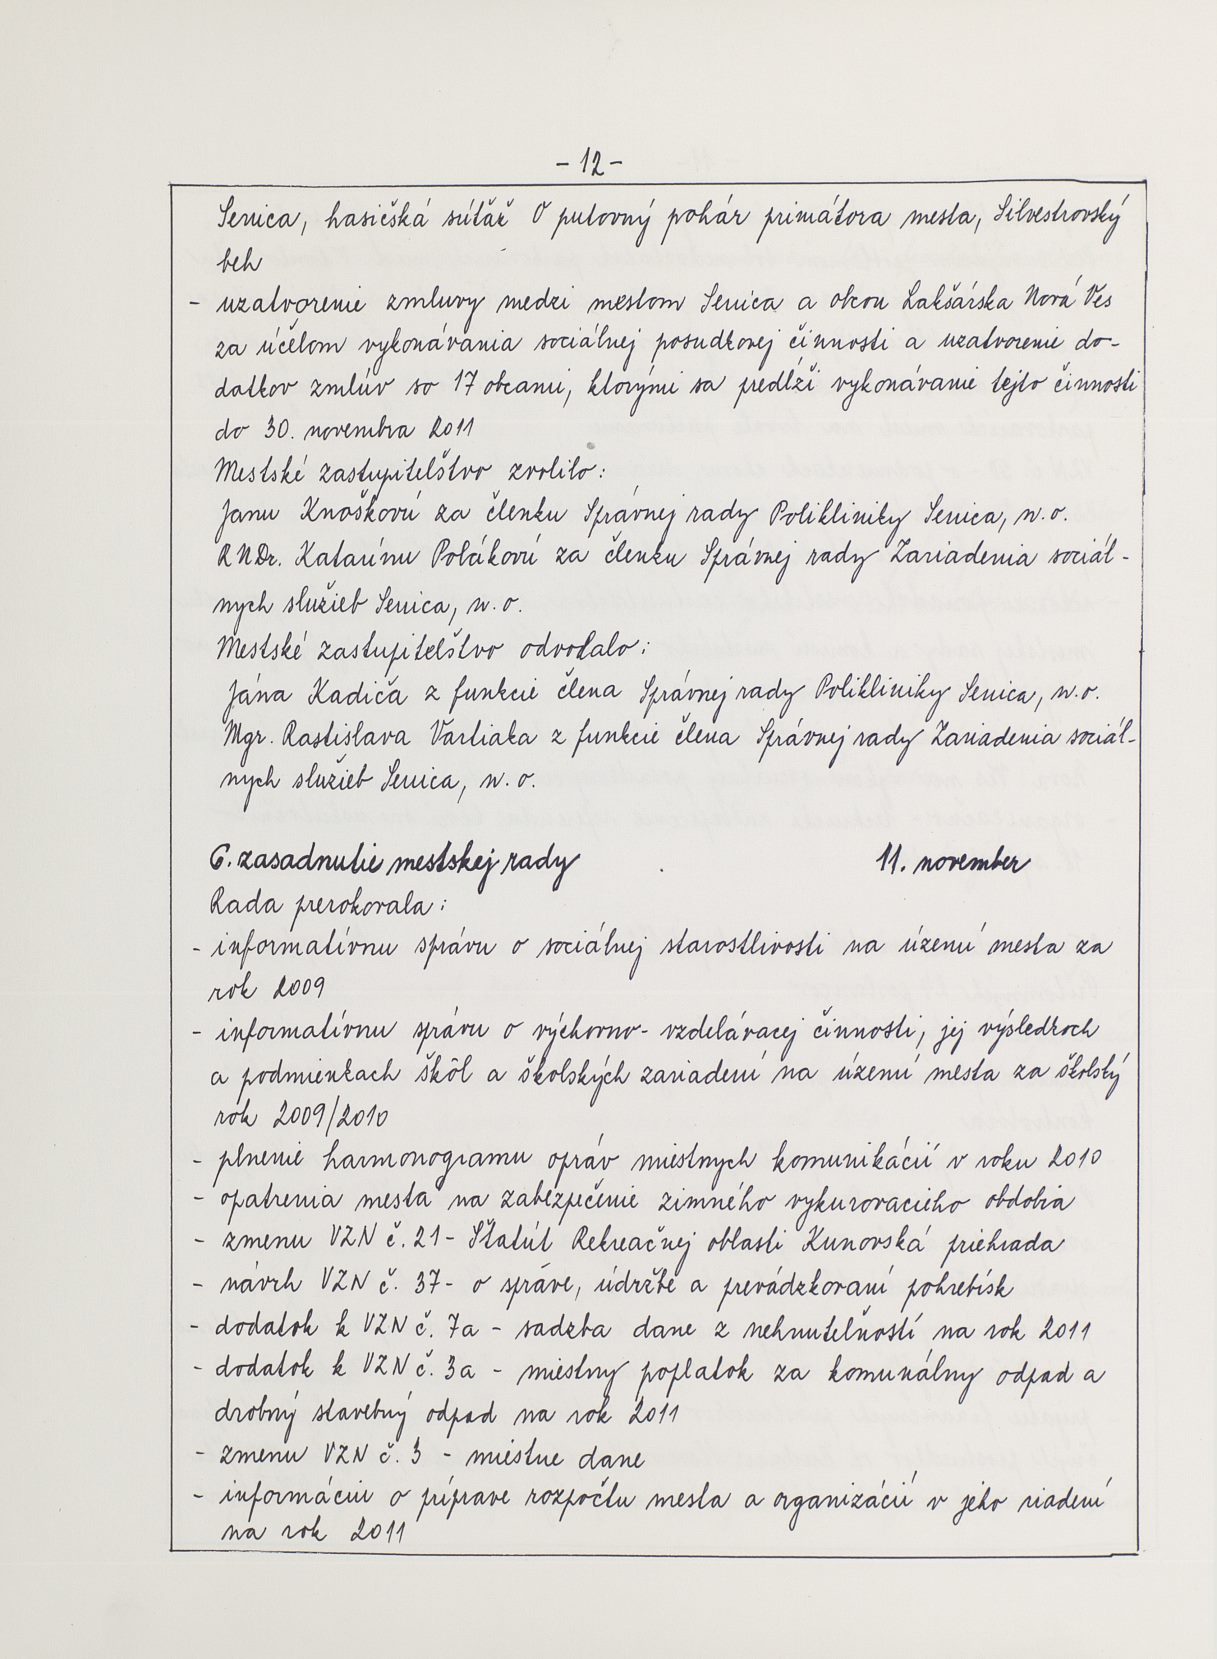 - 12 -
Senica, hasičská súťaž O putovný pohár primátora mesta, Silvestrovský
beh
- uzatvorenie zmluvy medzi mestom Senica a obcou Lakšárska Nová Ves
za účelom vykonávania sociálnej posudkovej činnosti a uzatvorenie do-
datkov zmlúv so 17 obcami, ktorými sa predĺži vykonávanie tejto činnosti
do 30. novembra 2011
Mestské zastupiteľstvo zvolilo:
Janu Knoškovú za členku Správnej rady Polikliniky Senica, n. o.
RNDr. Katarínu Polákovú za členku Správnej rady Zariadenia sociál-
nych služieb Senica, n. o.
Mestské zastupiteľstvo odvolalo:
Jána Kadiča z funkcie člena Správnej rady Polikliniky Senica, n. o.
Mgr. Rastislava Varliaka z funkcie člena Správnej rady Zariadenia sociál-
nych služieb Senica, n. o.
6. zasadnutie mestskej rady 11. november
Rada prerokovala:
- informatívnu správu o sociálnej starostlivosti na území mesta za
rok 2009
- informatívnu správu o výchovno-vzdelávacej činnosti, jej výsledkoch
a podmienkach škôl a školských zariadení na území mesta za školský
rok 2009/2010
- plnenie harmonogramu opráv miestnych komunikácií v roku 2010
- opatrenia mesta na zabezpečenie zimného vykurovacieho obdobia
- zmenu VZN č. 21 - Štatút Rekreačnej oblasti Kunovská priehrada
- návrh VZN č. 37 - o správe, údržbe a prevádzkovaní pohrebísk
- dodatok k VZN č. 7a - sadzba dane z nehnuteľností na rok 2011
- dodatok k VZN č. 3a - miestny poplatok za komunálny odpad a
drobný stavebný odpad na rok 2011
- zmenu VZN č. 3 - miestne dane
- informáciu o príprave rozpočtu mesta a organizácií v jeho riadení
na rok 2011